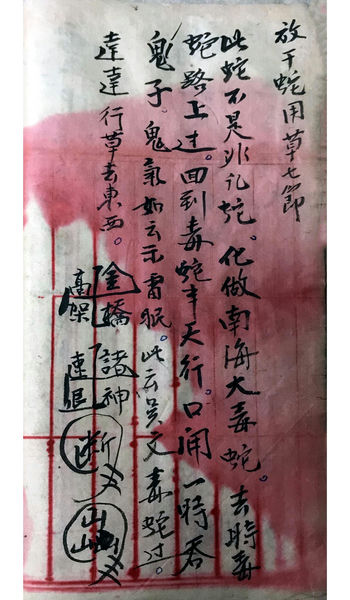 放干蛇用草七節
此蛇不是非凡蛇。化做南海大毒蛇。去時毒
蛇路上过。回到毒蛇半天行。口開一時吞
鬼子。鬼氣如云示雷狠。此云吳文毒蛇过。
達達行草去東西。
金橋諸神
高架速退